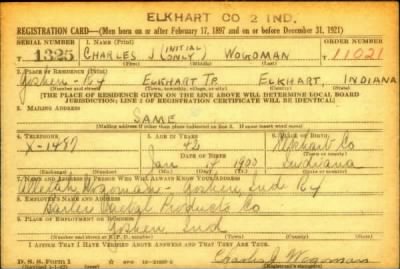 ELKHART CO 2 IND.
REGISTRATION CARD—(Men born on or after February 17, 1897 and on or before December 31, 1921)
SERIAL NUMBER 1. NAME (Print) ORDER NUMBER
T 1325 CHARLES J (INITIAL ONLY) WOGOMAN T 11021
2. PLACE OF RESIDENCE (Print)
Goshen - Ry ELKHART TP. ELKHART, INDIANA
(Number and street) (Town, township, village, or city) (County) (State)
[THE PLACE OF RESIDENCE GIVEN ON THE LINE ABOVE WILL DETERMINE LOCAL BOARD
JURISDICTION; LINE 2 OF REGISTRATION CERTIFICATE WILL BE IDENTICAL]
3. MAILING ADDRESS
SAME
[Mailing address if other than place indicated on line 2. If same insert word same]
4. TELEPHONE 5. AGE IN YEARS 6. PLACE OF BIRTH
X-1487 42 Elkhart Co
DATE OF BIRTH (Town or county)
Jan 14 1900 Indiana
(Exchange) (Number) (Mo.) (Day) (Yr.) (State or country)
7. NAME AND ADDRESS OF PERSON WHO WILL ALWAYS KNOW YOUR ADDRESS
Wogoman - Goshen, Ind Ry
8. EMPLOYER'S NAME AND ADDRESS
Products Co
9. PLACE OF EMPLOYMENT OR BUSINESS
Goshen Ind
(Number and street or R. F. D. number) (Town) (County) (State)
I AFFIRM THAT I HAVE VERIFIED ABOVE ANSWERS AND THAT THEY ARE TRUE.
D. S. S. Form 1 Charles J Wogoman
(Registrant's signature)